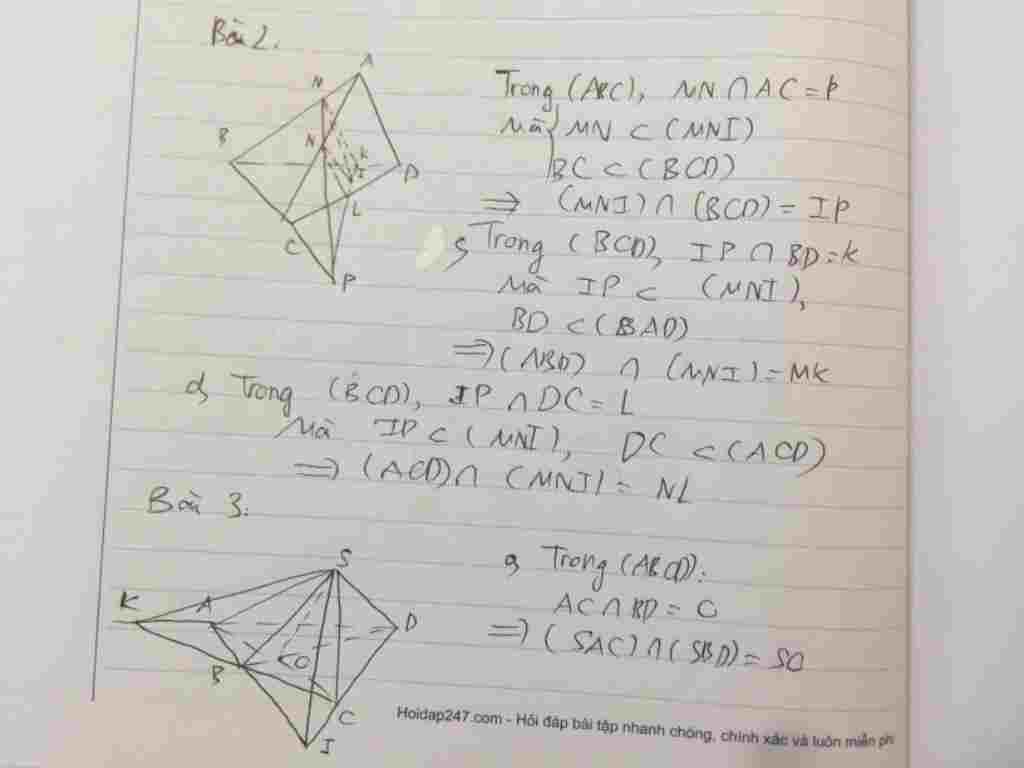 Bài 2.
A
N
B
N
K
I
D
L
C
P
Trong (ABC), MN ∩ AC = P
Mà { MN ⊂ (MNI)
BC ⊂ (BCD)
⇒ (MNI) ∩ (BCD) = IP
Trong (BCD), IP ∩ BD = K
Mà IP ⊂ (MNI),
BD ⊂ (BAD)
⇒ (ABD) ∩ (MNI) = MK
d, Trong (BCD), IP ∩ DC = L
Mà IP ⊂ (MNI), DC ⊂ (ACD)
⇒ (ACD) ∩ (MNI) = NL
Bài 3.
S
K
A
D
B
O
C
I
a, Trong (ABCD):
AC ∩ BD = O
⇒ (SAC) ∩ (SBD) = SO
Hoidap247.com - Hỏi đáp bài tập nhanh chóng, chính xác và luôn miễn phí